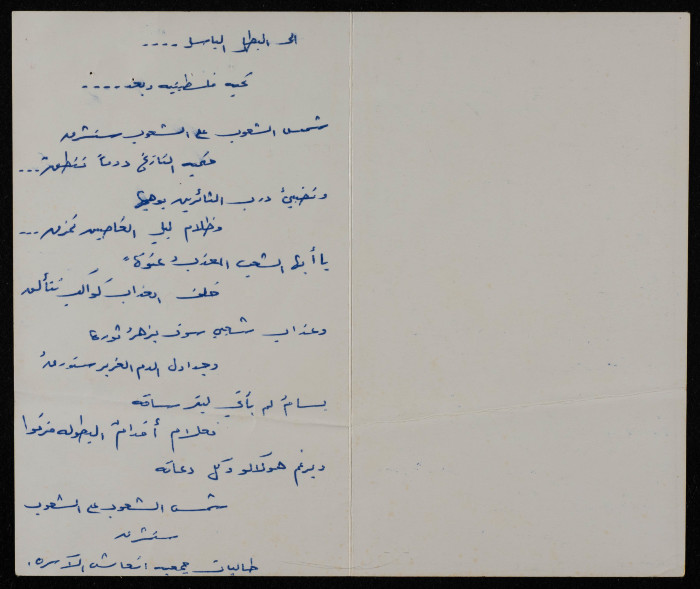 الى البطل الباسل ....
تحيه فلسطينيه وبعد ....
شمس الشعوب على الشعوب ستشرق
حكمة التاريخ دوماً تنطق ...
وتضيئ درب الثائرين بوهجها
وظلام ليل الغاصبين تمزق ...
يا أيها الشعب المعذب عنوة"
خلف العذاب كواكب تتألق
وعذاب شعبي سوف يزهر ثورة
وجداول الدم الغزير ستورق
بسام لم يأبى لبتر ساقه
فعلام أقدام البطوله مزقوا
وبرغم هوكالو وكل دعاته
شمس الشعوب على الشعوب
ستشرق
طالبات جمعيه انعاش الاسره .